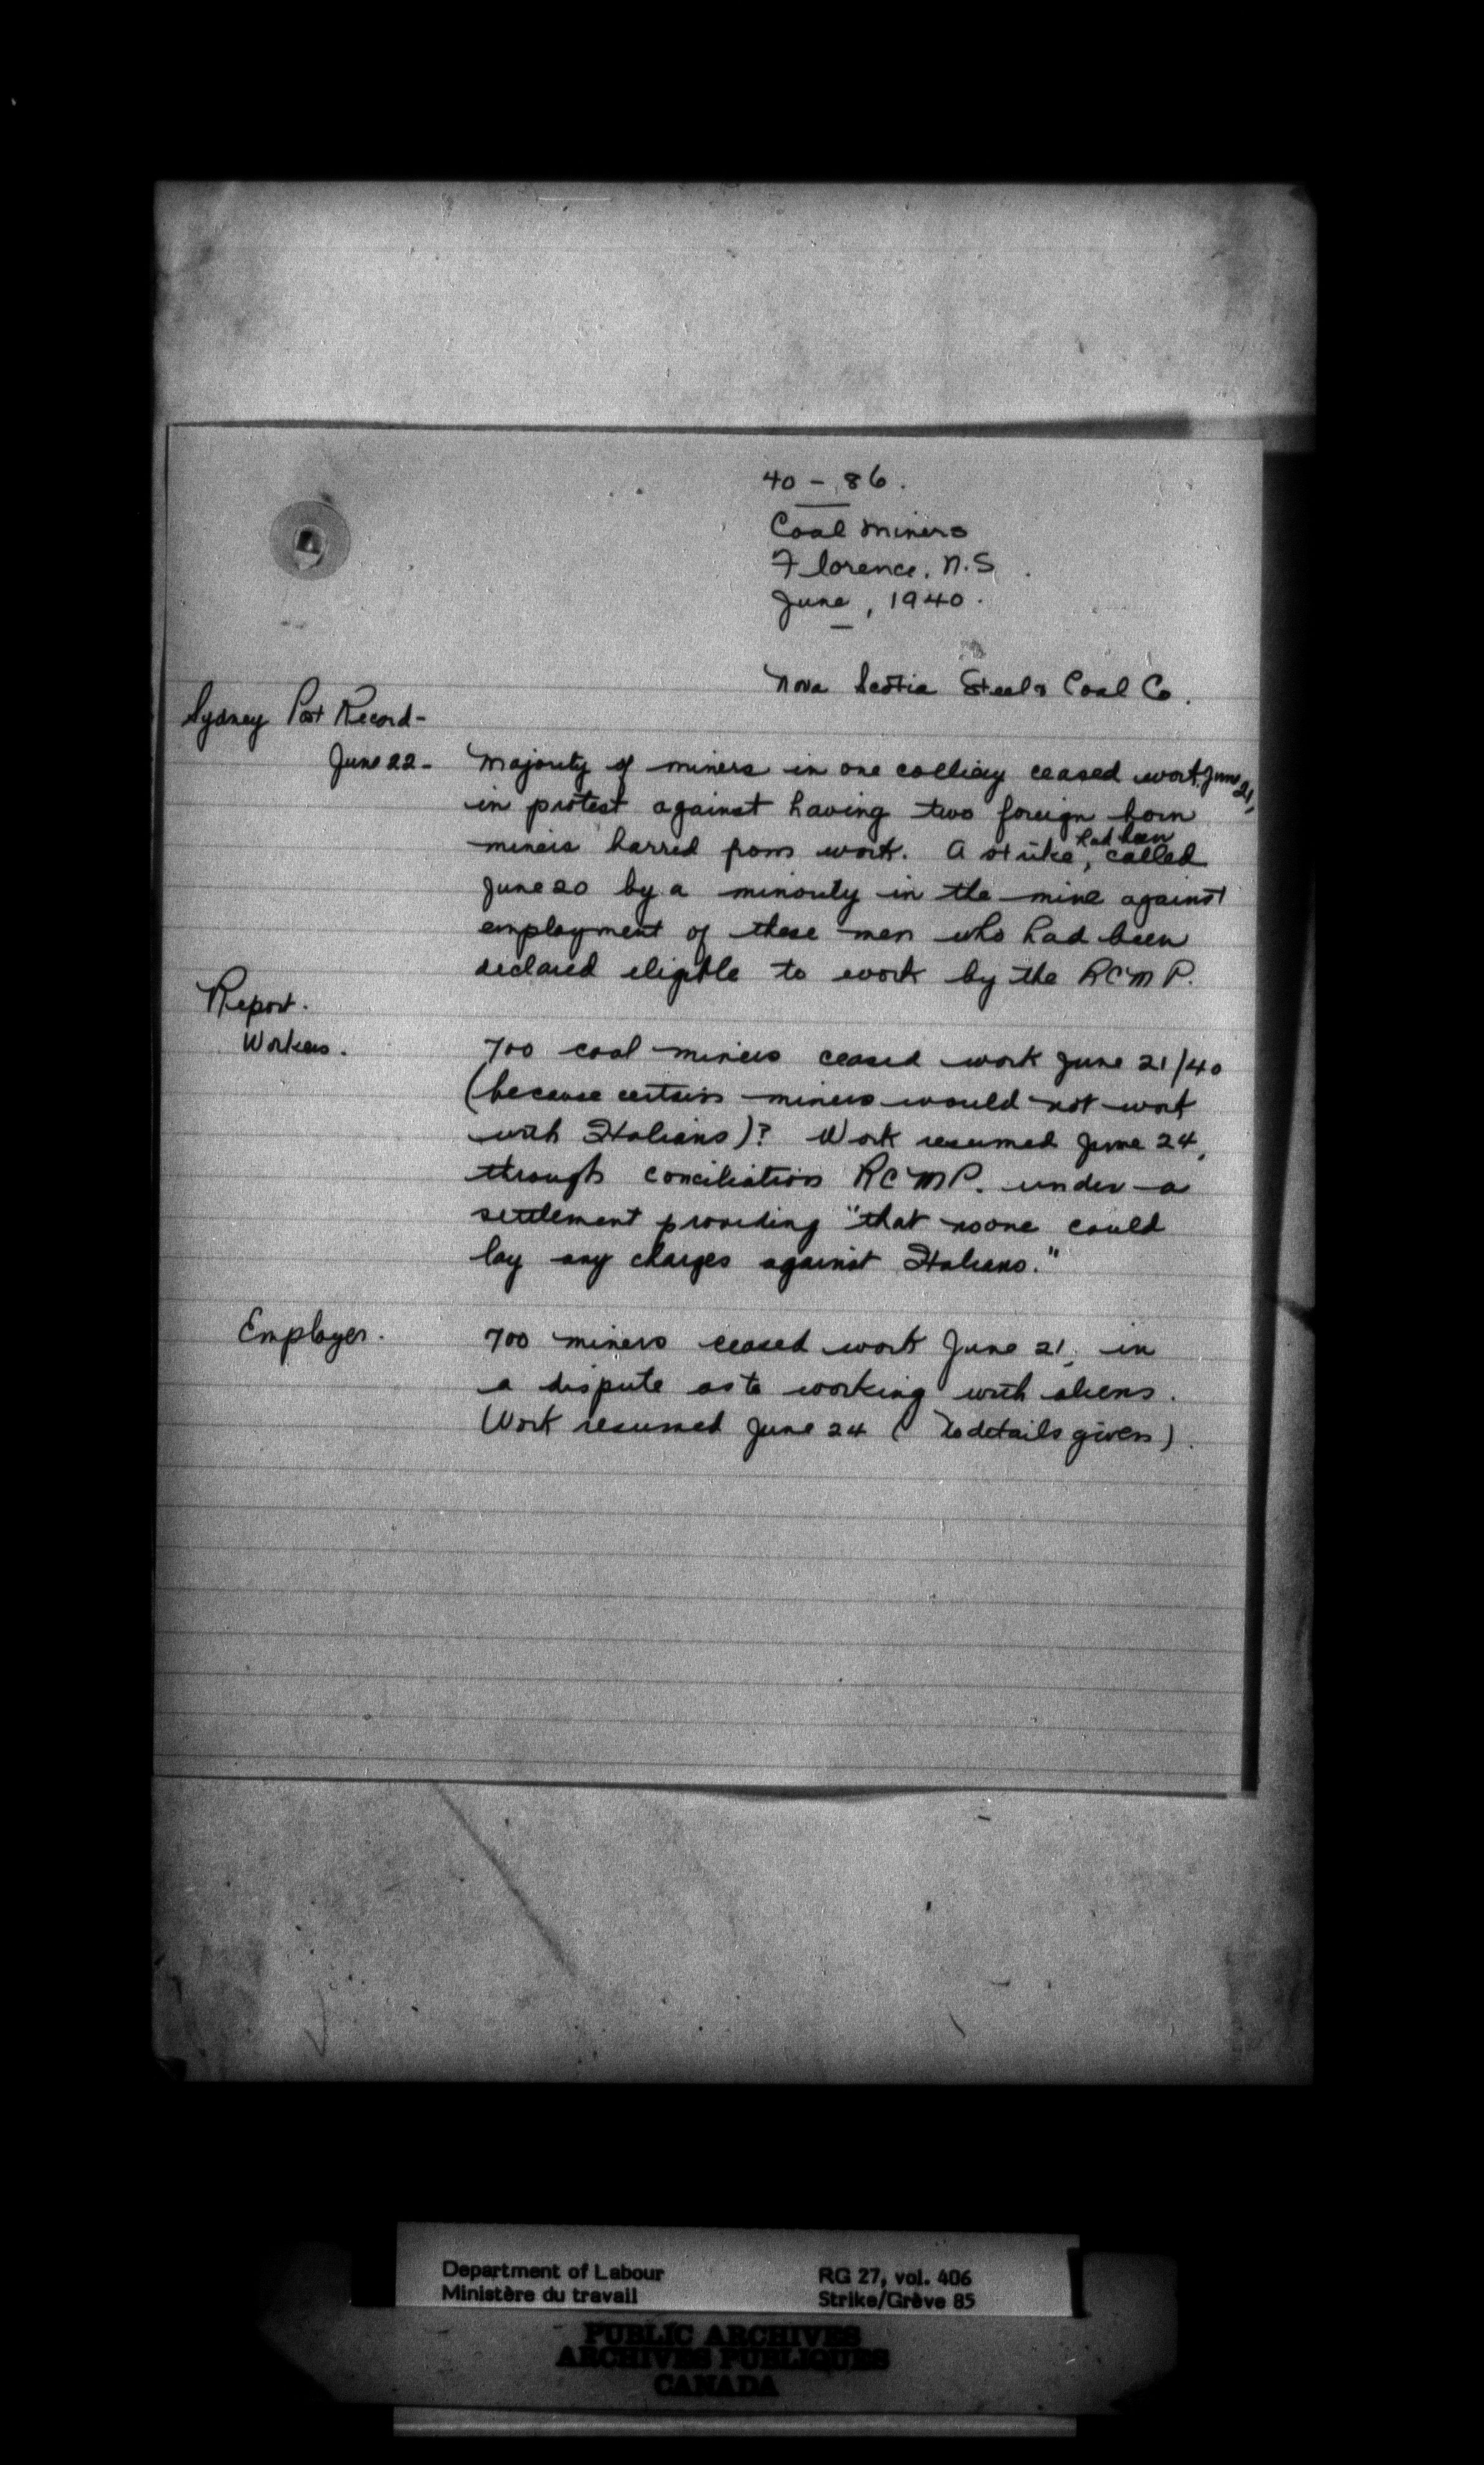 40 - 86.
Coal Miners
Florence, N.S.
June, 1940.
Nova Scotia Steel & Coal Co.
Sydney Post Record -
June 22 - Majority of miners in one colliery ceased work June 21,
in protest against having two foreign born
miners barred from work. A strike, had been called
June 20 by a minority in the mine against
employment of these men who had been
declared eligible to work by the RCMP.
Report.
Workers. 700 coal miners ceased work June 21/40
(because certain miners would not work
with Italians)? Work resumed June 24,
through conciliation RCMP. under a
settlement providing "that noone could
lay any charges against Italians."
Employer. 700 miners ceased work June 21, in
a dispute as to working with aliens.
Work resumed June 24 (No details given).
Department of Labour
Ministère du travail
RG 27, vol. 406
Strike/Grève 85
PUBLIC ARCHIVES
ARCHIVES PUBLIQUES
CANADA